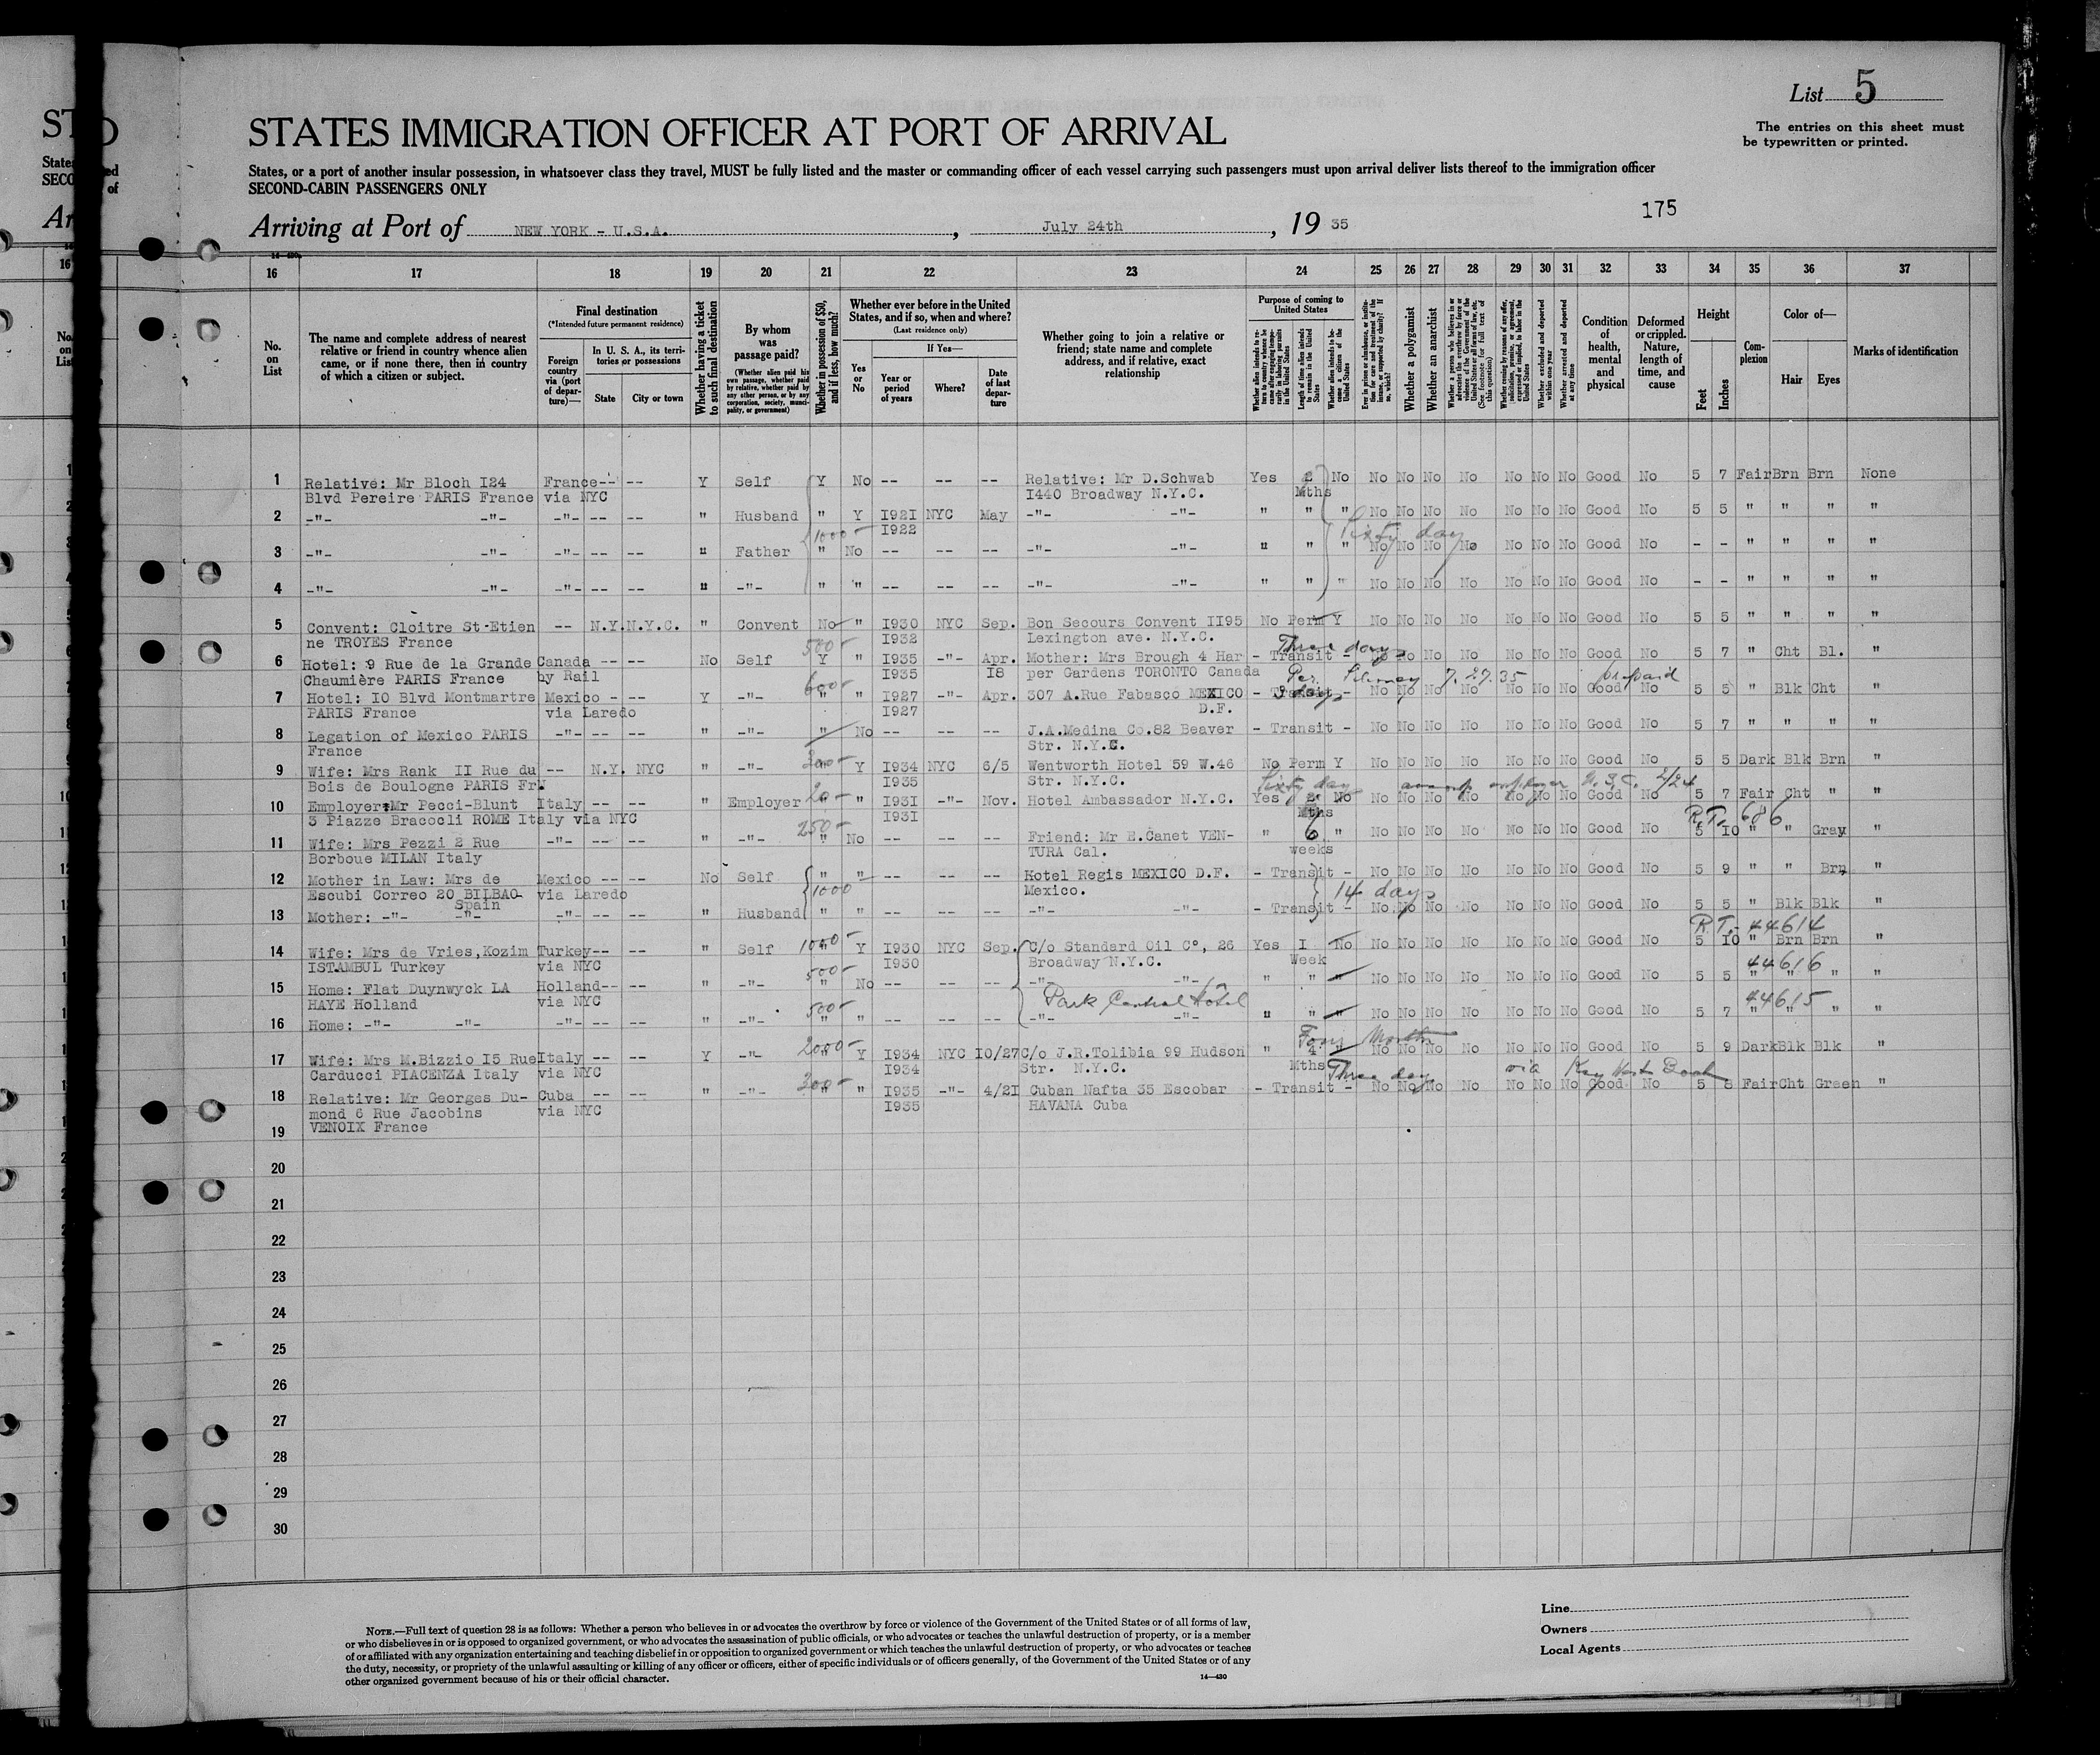 List 5
The entries on this sheet must
be typewritten or printed.
STATES IMMIGRATION OFFICER AT PORT OF ARRIVAL
States, or a port of another insular possession, in whatsoever class they travel, MUST be fully listed and the master or commanding officer of each vessel carrying such passengers must upon arrival deliver lists thereof to the immigration officer
SECOND-CABIN PASSENGERS ONLY
175
Arriving at Port of NEW YORK - U.S.A. , July 24th , 19 35
16 17 18 19 20 21 22 23 24 25 26 27 28 29 30 31 32 33 34 35 36 37
No. on List
The name and complete address of nearest
relative or friend in country whence alien
came, or if none there, then in country
of which a citizen or subject.
Final destination
(*Intended future permanent residence)
Foreign country via (port of departure)—
In U. S. A., its territories or possessions
State
City or town
Whether having a ticket to such final destination
By whom was passage paid?
(Whether alien paid his own passage, whether paid by relative, whether paid by any other person, or by any corporation, society, municipality, or government)
Whether in possession of $50, and if less, how much?
Whether ever before in the United States, and if so, when and where?
(Last residence only)
Yes or No
If Yes—
Year or period of years
Where?
Date of last departure
Whether going to join a relative or
friend; state name and complete
address, and if relative, exact
relationship
Purpose of coming to United States
Whether a polygamist
Whether an anarchist
Whether arrested and deported at any time
Condition of health, mental and physical
Deformed or crippled. Nature, length of time, and cause
Height
Feet
Inches
Complexion
Color of—
Hair
Eyes
Marks of identification
1 Relative: Mr Bloch I24 France-- -- Y Self Y No -- -- -- Relative: Mr D.Schwab Yes 2 No No No No No No No No Good No 5 7 Fair Brn Brn None
Blvd Pereire PARIS France via NYC I440 Broadway N.Y.C. Mths
2 -"- -"- -"- -- -- " Husband " Y I921 NYC May -"- -"- " " " No No No No No No No Good No 5 5 " " " "
1000- I922 Sixty days
3 -"- -"- -"- -- -- " Father " No -- -- -- -"- -"- " " " No No No No No No No Good No - - " " " "
4 -"- -"- -"- -- -- " -"- " " -- -- -- -"- -"- " " " No No No No No No No Good No - - " " " "
5 Convent: Cloitre St-Etien -- N.Y. N.Y.C. " Convent No " I930 NYC Sep. Bon Secours Convent II95 No Perm Y No No No No No No No Good No 5 5 " " " "
ne TROYES France 500- I932 Lexington ave. N.Y.C. Three days
6 Hotel: 9 Rue de la Grande Canada -- -- No Self Y " I935 -"- Apr. Mother: Mrs Brough 4 Har - Transit - No No No No No No No Good No 5 7 " Cht Bl. "
Chaumière PARIS France by Rail 600- I935 I8 per Gardens TORONTO Canada 7.27.35 prepaid
7 Hotel: IO Blvd Montmartre Mexico - -- Y -"- " " I927 -"- Apr. 307 A.Rue Fabasco MEXICO - Transit - No No No No No No No Good No 5 5 " Blk Cht "
PARIS France via Laredo I927 D.F.
8 Legation of Mexico PARIS -"- -- -- " -"- " No -- -- -- J.A.Medina Co.82 Beaver - Transit - No No No No No No No Good No 5 7 " " " "
France Str. N.Y.C.
9 Wife: Mrs Rank II Rue du -- N.Y. NYC " -"- 300- Y I934 NYC 6/5 Wentworth Hotel 59 W.46 No Perm Y No No No No No No No Good No 5 5 Dark Blk Brn "
Bois de Boulogne PARIS Fr. I935 Str. N.Y.C. Sixty days
10 Employer:Mr Pecci-Blunt Italy -- -- " Employer 20- " " I93I -"- Nov. Hotel Ambassador N.Y.C. Yes 2 No No No No No No No No Good No 5 7 Fair Cht " "
3 Piazze Bracocli ROME Italy via NYC I93I Mths R.T. 686
11 Wife: Mrs Pezzi 2 Rue -"- -- -- " -"- 250- " No -- -- -- Friend: Mr E.Canet VEN- " 6 " No No No No No No No Good No 5 10 " " Gray "
Borboue MILAN Italy TURA Cal. weeks
12 Mother in Law: Mrs de Mexico -- -- No Self " " -- -- -- Hotel Regis MEXICO D.F. - Transit - No No No No No No No Good No 5 9 " " Brn "
Escubi Correo 20 BILBAO- via Laredo 1000 Mexico. 14 days
Spain
13 Mother: -"- -"- -"- -- -- " Husband " " -- -- -- -"- -"- - Transit - No No No No No No No Good No 5 5 " Blk Blk "
R.T.- 44614
14 Wife: Mrs de Vries,Kozim Turkey-- -- " Self 1000- Y I930 NYC Sep. C/o Standard Oil C°, 26 Yes I No No No No No No No No Good No 5 10 " Brn Brn "
ISTAMBUL Turkey via NYC I930 Broadway N.Y.C. Week
44616
15 Home: Flat Duynwyck LA Holland-- -- " -"- 500- " No -- -- -- -"- -"- " " " No No No No No No No Good No 5 5 " " " "
HAYE Holland via NYC Park Central Hotel
44615
16 Home: -"- -"- -"- -- -- " -"- 500- " " -- -- -- -"- -"- " " " No No No No No No No Good No 5 7 " " " "
Four Months
17 Wife: Mrs M.Bizzio I5 Rue Italy -- -- Y -"- 2000- Y I934 NYC IO/27 C/o J.R.Tolibia 99 Hudson " 4 " No No No No No No No Good No 5 9 Dark Blk Blk "
Carducci PIACENZA Italy via NYC I934 Str. N.Y.C. Mths Three days via Key West
18 Relative: Mr Georges Du- Cuba -- -- " -"- 300- " " I935 -"- 4/2I Cuban Nafta 35 Escobar - Transit - No No No No No No No Good No 5 8 Fair Cht Green "
mond 6 Rue Jacobins via NYC I935 HAVANA Cuba
VENOIX France
19
20
21
22
23
24
25
26
27
28
29
30
NOTE.—Full text of question 28 is as follows: Whether a person who believes in or advocates the overthrow by force or violence of the Government of the United States or of all forms of law,
or who disbelieves in or is opposed to organized government, or who advocates the assassination of public officials, or who advocates or teaches the unlawful destruction of property, or is a member
of or affiliated with any organization entertaining and teaching disbelief in or opposition to organized government or which teaches the unlawful destruction of property, or who advocates or teaches
the duty, necessity, or propriety of the unlawful assaulting or killing of any officer or officers, either of specific individuals or of officers generally, of the Government of the United States or of any
other organized government because of his or their official character.
14—430
Line
Owners
Local Agents